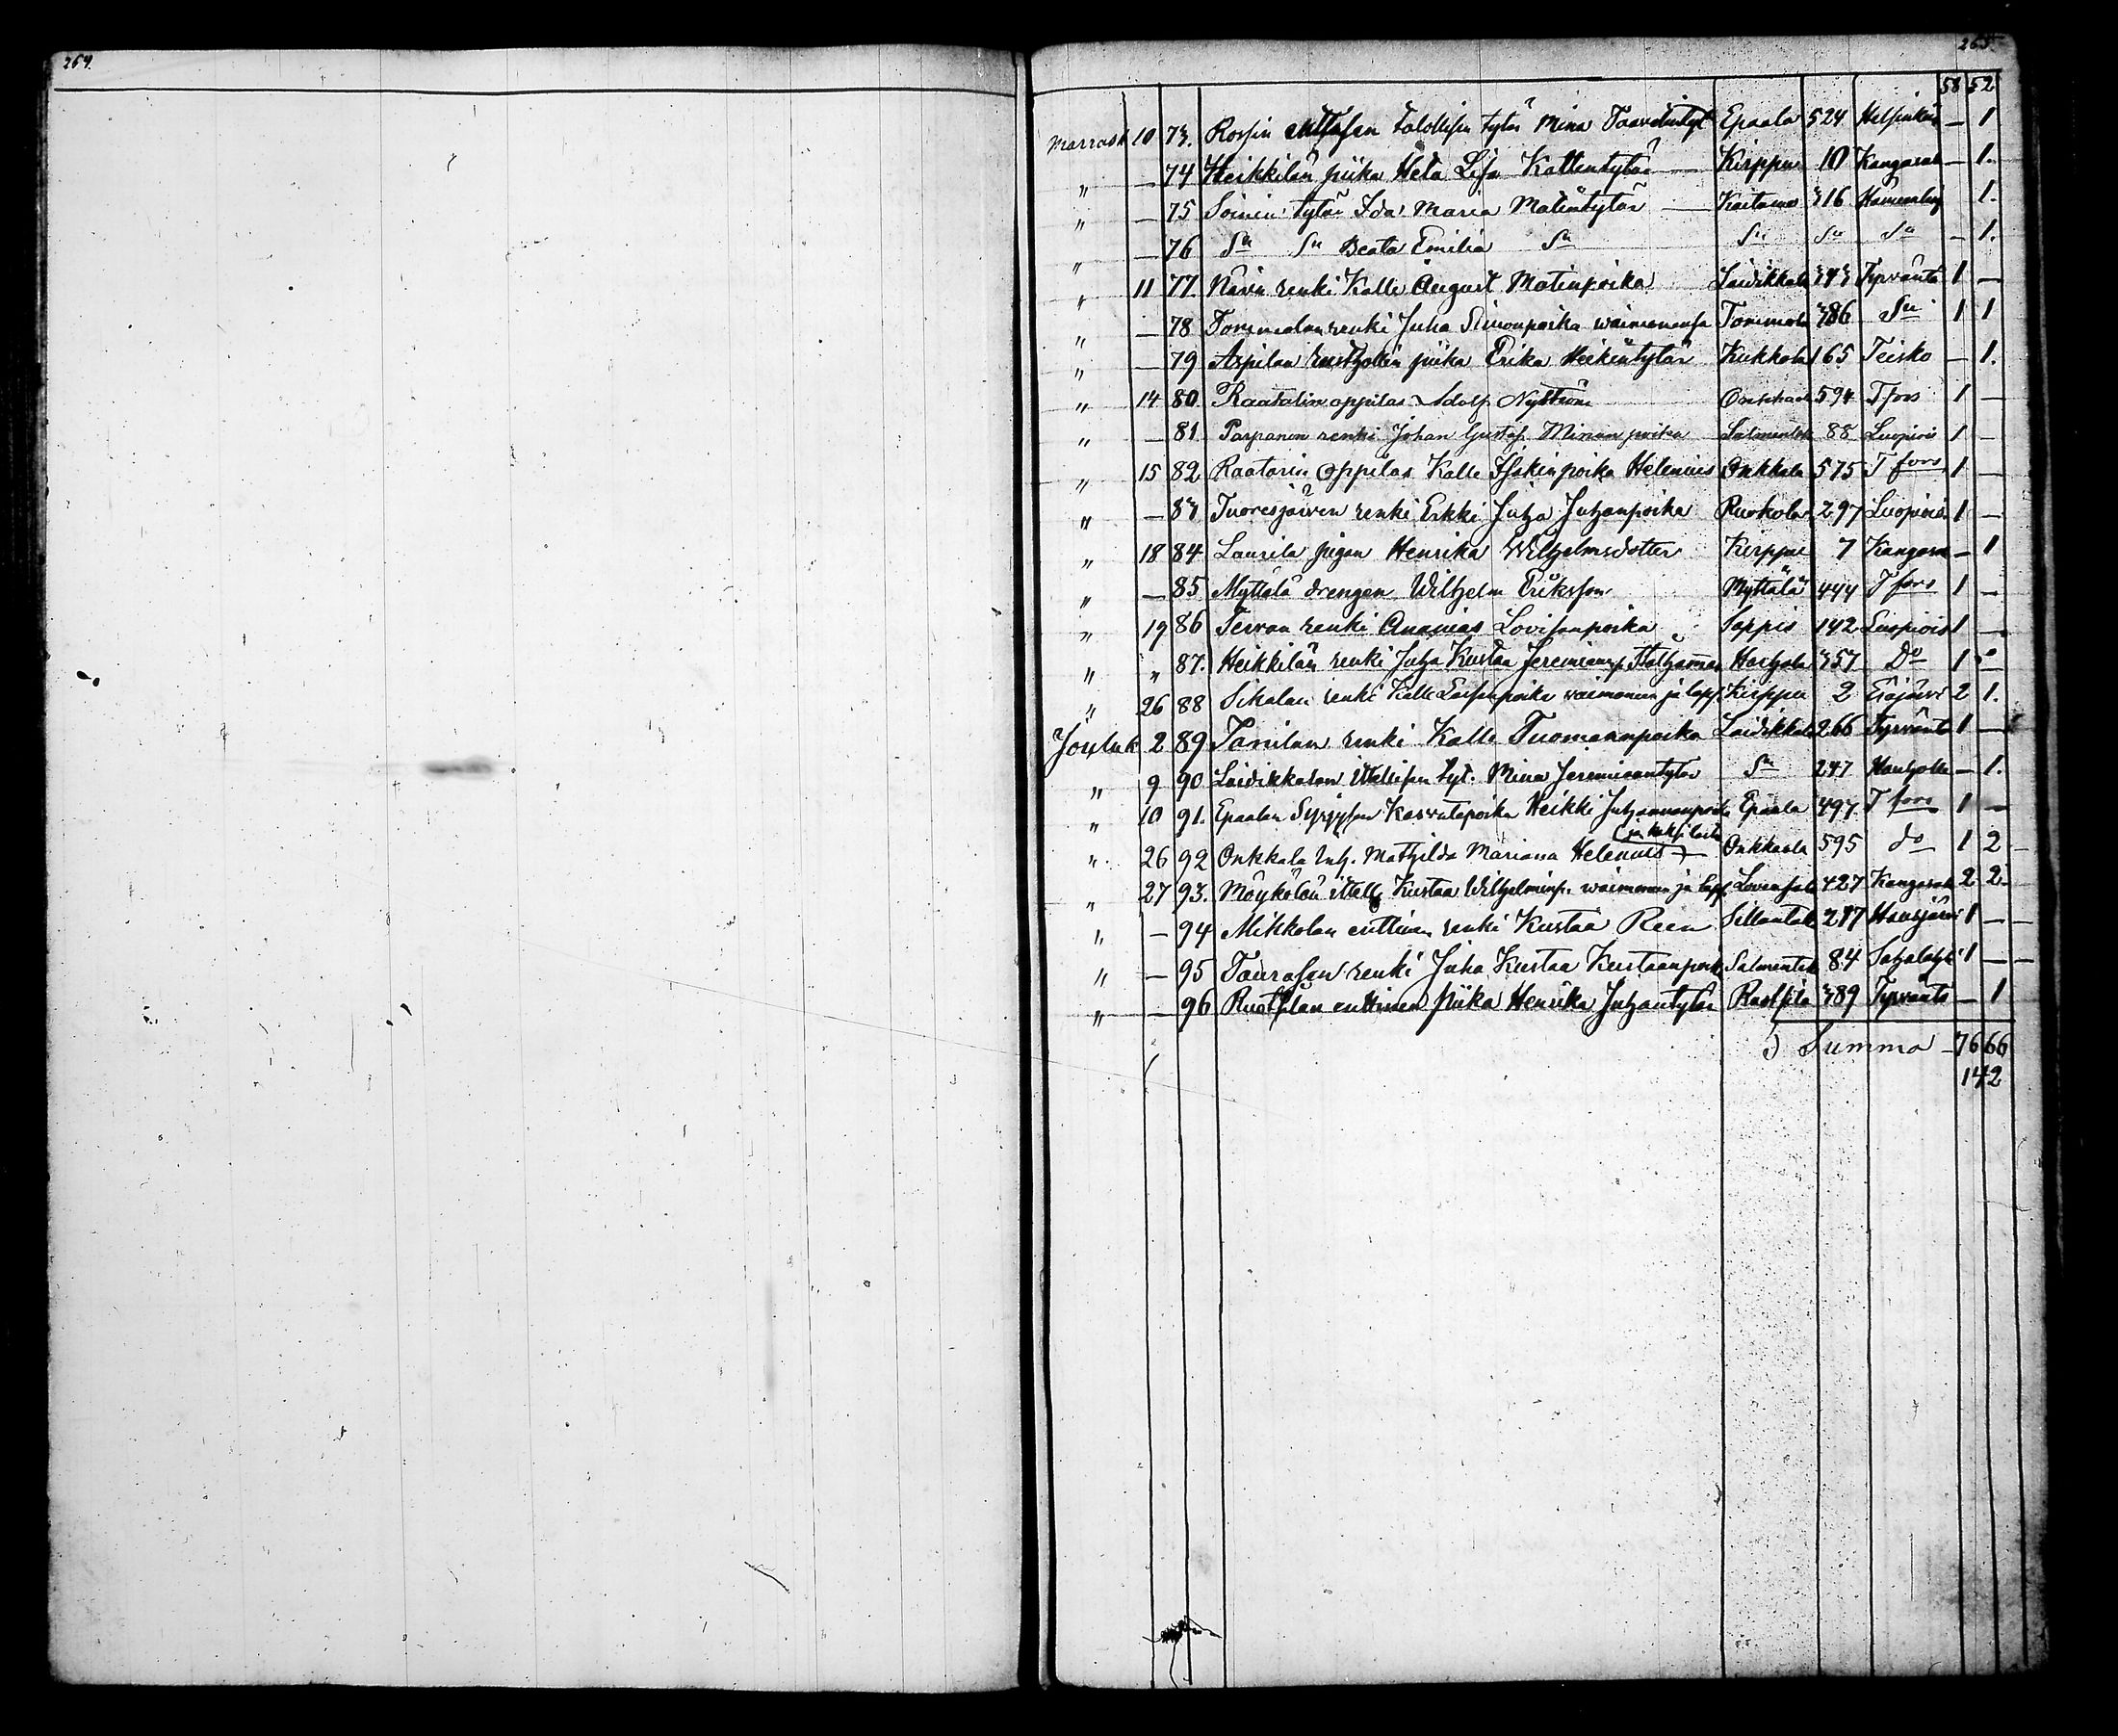 264.
265.
58 52
Marrask 10 73. Rossin Talollisen tytär Mina Taavetintyt Epaala 524 Helsinki — 1
" — 74 Heikkilän piika Heta Lisa Kallentytär — Kirppu 10 Kangasal — 1.
" — 75 Soinin tytär Ida Maria Matintytär — Kaitamo 316 Hämeenling 1.
" — 76 Sn Sn Beata Emilia Sn Sn Sn Sn — 1.
" 11 77 Navin renki Kalle August Matinpoika Laidikkala 343 Tyrväntö 1 —
" — 78 Tommolan renki Juha Simonpoika waimonensa Tommola 386 Sn 1 1
" — 79 Arpilan rusthollin piika Erika Heikintytär Kukkola 165 Teisko — 1.
" 14 80 Raatalin oppilas Adolf Nyström Onkkaala 594 T fors 1 —
" — 81 Parpanan renki Johan Gustaf Minan poika Salmentak 88 Luopiois 1 —
" 15 82 Raatarin oppilas Kalle Isakinpoika Helenius Onkkala 575 T fors 1 —
" — 83 Tuoresjärven renki Erkki Juha Juhanpoika Ruokola 297 Luopiois 1 —
" 18 84 Laurila pigan Henrika Wilhelmsdotter Kirppu 7 Kangasa — 1
" — 85 Myttälä drengen Wilhelm Eriksson Myttälä 444 T fors 1 —
" 19 86 Tervan renki Ananias Lovisanpoika Sappe 142 Luopiois 1 —
" " 87. Heikkilän renki Juha Kustaa Jeremianp. Hålhamma Harhala 357 Do 1 —
" 26 88 Sikalan renki Kalle Loisanpoika waimoneen ja laps. Kirppu 2 Eräjärvi 2 1.
Jouluk 2 89 Tanilan renki Kalle Tuomaanpoika Laidikkala 266 Tyrväntö 1 —
" 9 90 Laidikkalan Itsellisen tyt. Mina Jeremiaantytär Sn 247 Hauholle — 1.
" 10 91. Epaalan Syrjysen Kasvatapoika Heikki Juhannanpoika Epaala 497 T fors 1 —
" 26 92 Onkkala Inh. Mathilda Mariana Helenius (ja kaksi lasta) Onkkaala 595 do 1 2
" 27 93. Möykölän Itsell. Kustaa Wilhelminp. waimoneen ja laps Lovensal 427 Kangasal 2 2
" — 94 Mikkolan enttinen renki Kustaa Reen Sillantak 217 Hausjärvi 1 —
" — 95 Taurasen renki Juha Kustaa Kustaanpoik Salmentak 84 Sahalaht 1 —
" — 96 Ruotsilan enttinen piika Henrika Juhantytär Ruotsila 389 Tyrväntö — 1
Summa — 76 66
142